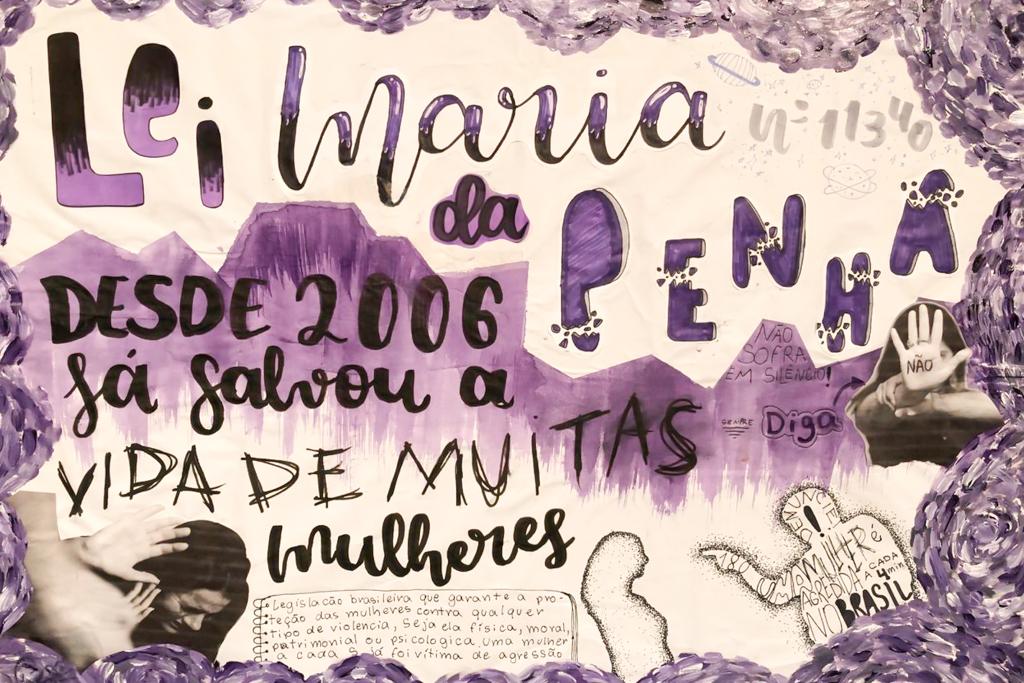 Lei Maria
nº 11340
da
PENHA
DESDE 2006
Já salvou a
VIDA DE MUITAS
mulheres
NÃO
SOFRA
EM SILÊNCIO!
SEMPRE
Diga
NÃO
Legislacão brasileira que garante a pro-
teção das mulheres contra qualquer
tipo de violencia, seja ela física, moral,
patrimonial ou psicologica, uma mulher
a cada 5 já foi vítima de agressão
DENUNCIE
!
180
UMA MULHER é
AGREDIDA A CADA
4 min
NO BRASIL